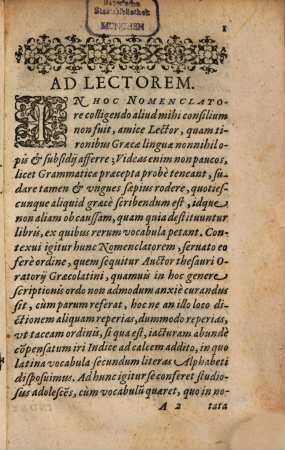 Bayerische
Staatsbibliothek
MÜNCHEN
1
AD LECTOREM.
IN HOC NOMENCLATO-
re colligendo aliud mihi consilium
non fuit, amice Lector, quam ti-
ronibus Græcæ linguæ nonnihil o-
pis & subsidij afferre; Videas enim non paucos,
licet Grammaticæ præcepta probè teneant, su-
dare tamen & vngues sæpius rodere, quoties-
cunque aliquid græcè scribendum est, idque
non aliam ob caussam, quam quia destituuntur
libris, ex quibus rerum vocabula petant. Con-
texui igitur hunc Nomenclatorem, seruato eo
ferè ordine, quem sequitur Auctor thesauri O-
ratorij Græcolatini, quamuis in hoc genere
scriptionis ordo non admodum anxiè curandus
sit, cùm parum referat, hoc ne an illo loco di-
ctionem aliquam reperias, dummodo reperias,
vt taceam ordinis, si qua est, iacturam abundè
cōpensatum iri Indice ad calcem addito, in quo
latina vocabula secundum literas Alphabeti
disposuimus. Ad hunc igitur se conferet studio-
sus adolescēs, cùm vocabulū quæret, quo in no-
A 2 tata